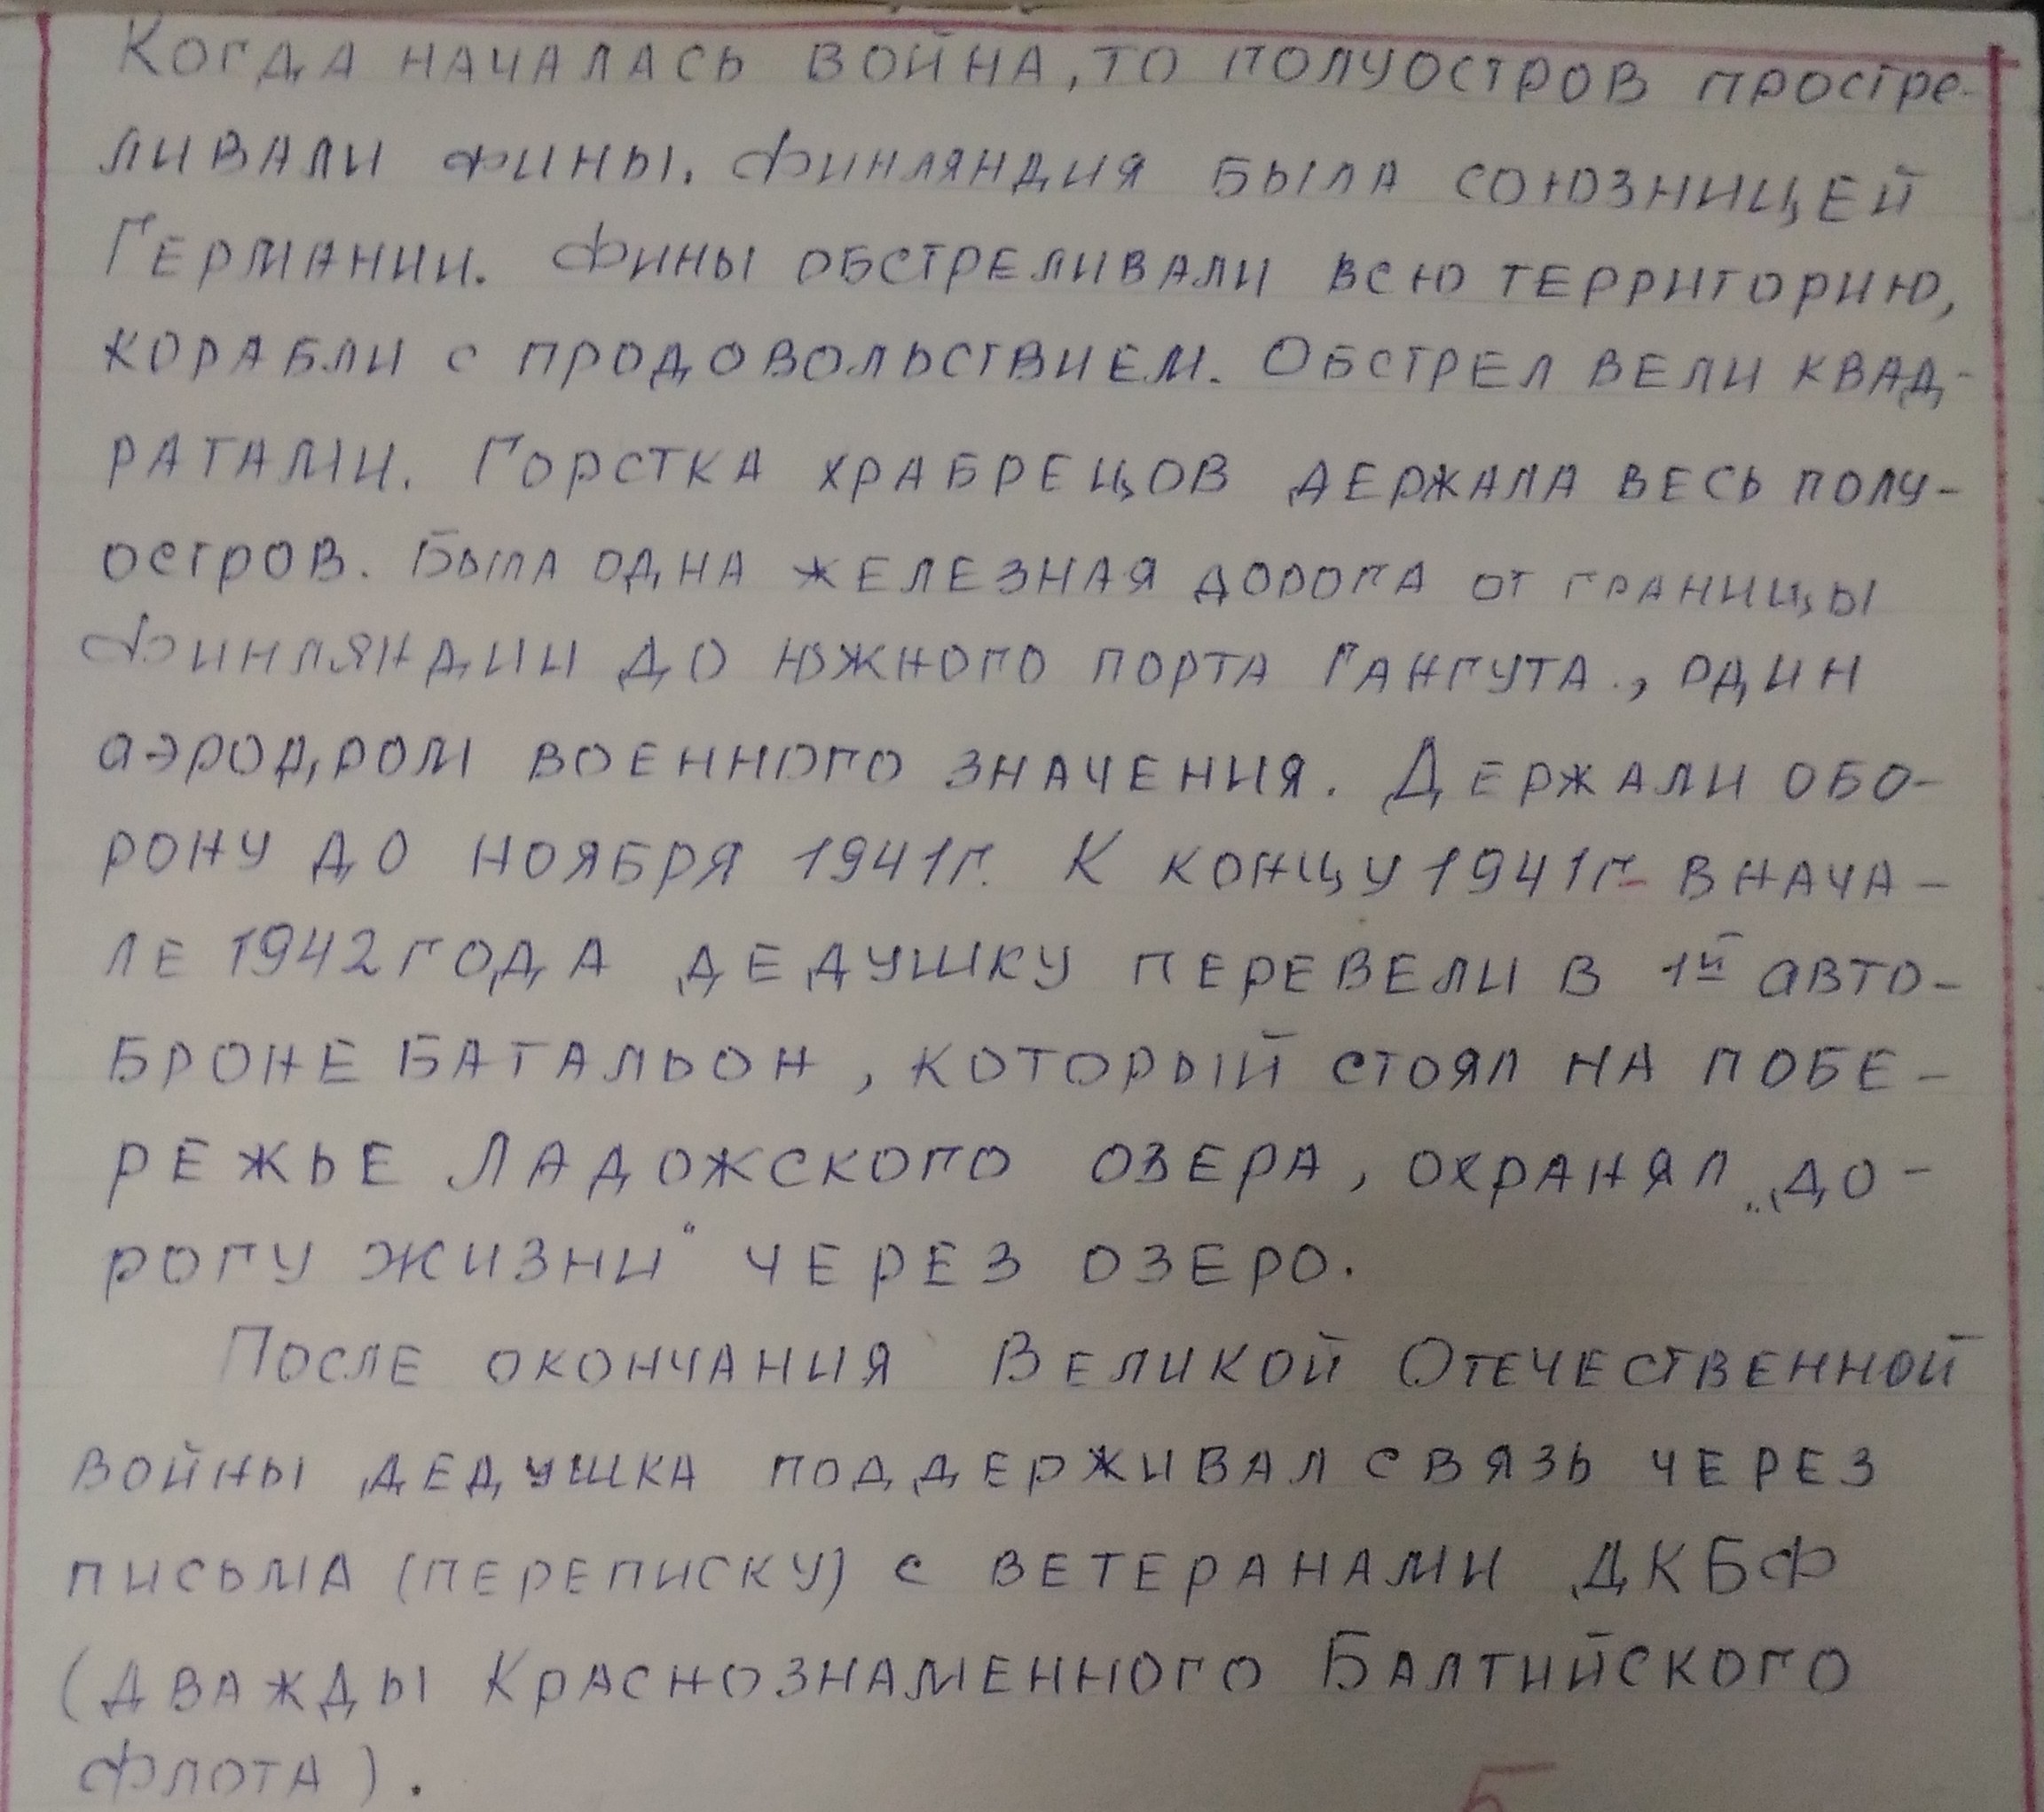 Когда началась война, то полуостров простре-
ливали фины. Финляндия была союзницей
Германии. Фины обстреливали всю территорию,
корабли с продовольствием. Обстрел вели квад-
ратами. Горстка храбрецов держала весь полу-
остров. Была одна железная дорога от границы
Финляндии до южного порта Гангута., один
аэродром военного значения. Держали обо-
рону до ноября 1941г. К концу 1941г- в нача-
ле 1942 года дедушку перевели в 1й авто-
броне батальон, который стоял на побе-
режье Ладожского озера, охранял „до-
рогу жизни" через озеро.
После окончания Великой Отечественной
войны дедушка поддерживал связь через
письма (переписку) с ветеранами ДКБФ
(дважды Краснознаменного Балтийского
флота).
5